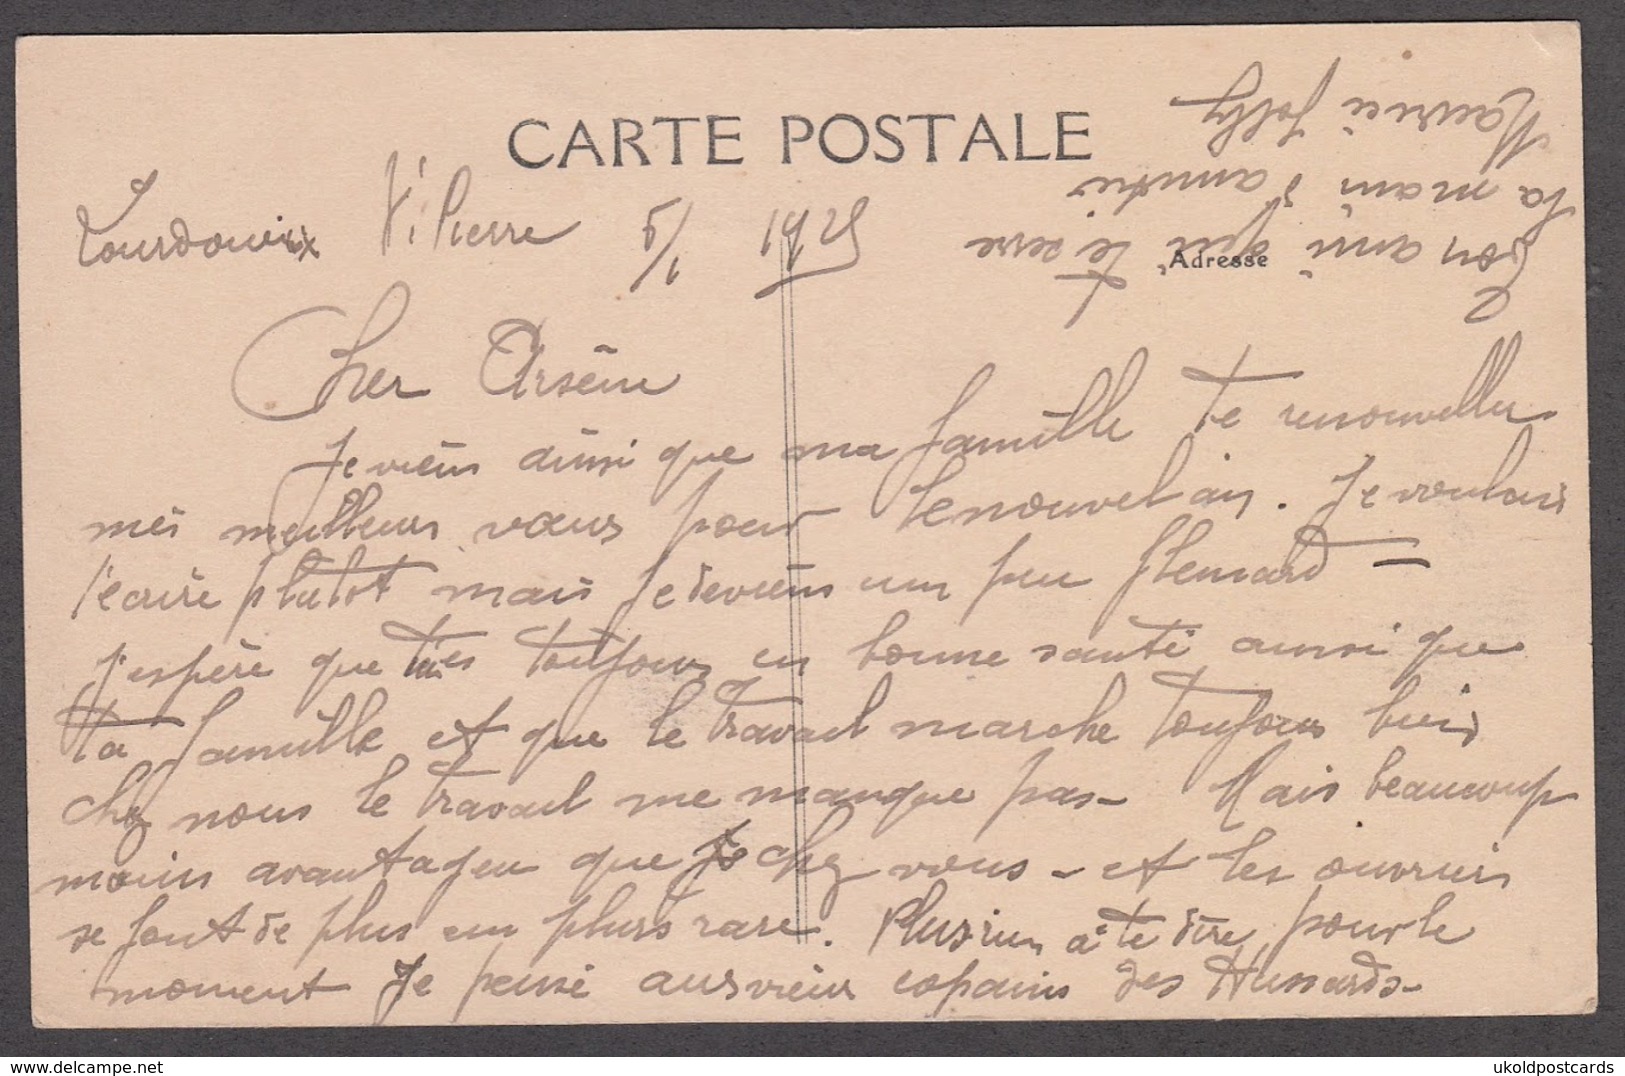 CARTE POSTALE
Lourdoueix St Pierre 5/1 1925
Adresse
Cher Arsène
Je viens ainsi que ma famille te renouveller
mes meilleurs vœux pour le nouvel an. Je voulais
t'écrire plutot mais je deviens un peu flemard -
j'espère que tu es toujours en bonne santé ainsi que
ta famille et que le travail marche toujours bien
chez nous le travail me manque pas - Mais beaucoup
moins avantageu que chez vous - et les ouvriers
se font de plus en plus rare. Plus rien à te dire pour le
moment Je pense aux vieux copains des Hussards -
Ton ami qui te serre
la main d'amitié
Maurice Jolly
delcampe.net
ukoldpostcards